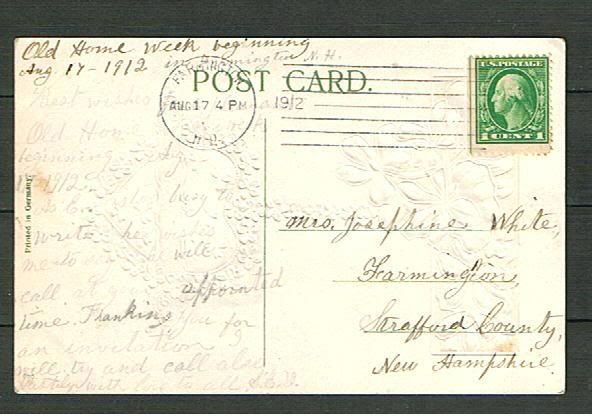 Old Home Week beginning
Aug. 17-1912 in Farmington N. H.
POST CARD.
FARMINGTON
AUG 17 4 PM 1912
N. H.
U.S. POSTAGE
1 CENT 1
Best wishes
Old Home
beginning
1912.
busy to
write she wishes
me to will
call at your appointed
time. Thanking you for
an invitation I
will try and call also
with love to all
Printed in Germany
Mrs. Josephine White,
Farmington,
Strafford County,
New Hampshire.